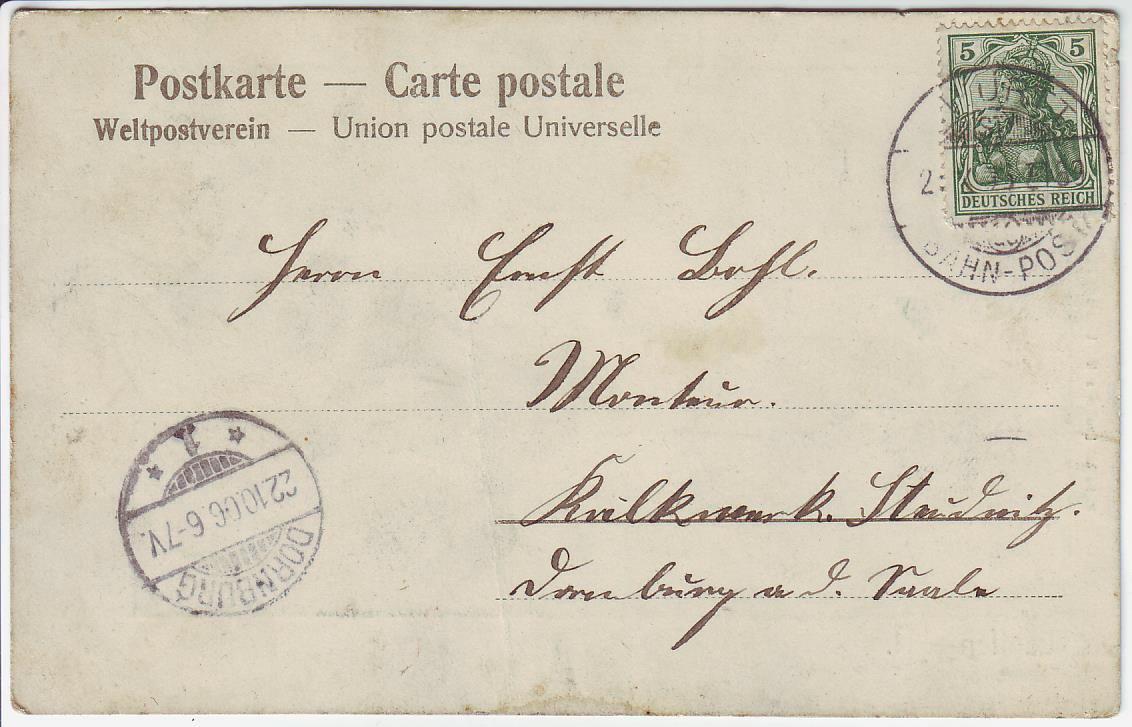 Postkarte — Carte postale
Weltpostverein — Union postale Universelle
5 5
DEUTSCHES REICH
BAHN-POST
Herrn Ernst Bohl.
Monteur.
Kalkwerk. Steudnitz.
Dornburg a d. Saale
1
22.10.06.6-7V.
DORNBURG